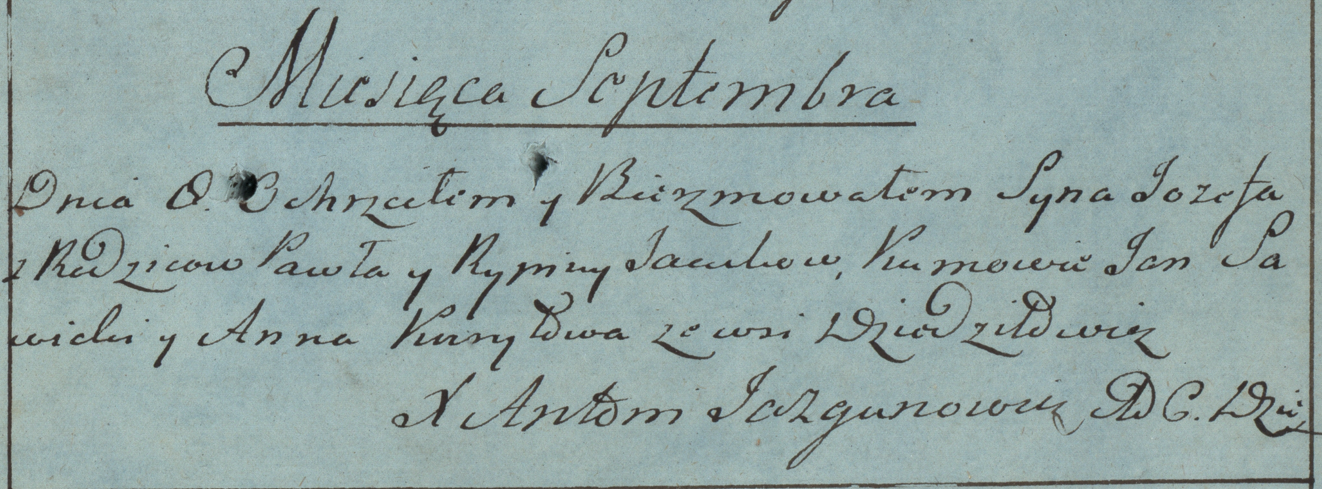 Miesięca Septembra
Dnia 8. Ochrzciłem y Bierzmowałem Syna Jozefa
z Rodzicow Pawła y Kypiny Jacubow, Kumowie Jan Sa
wicki y Anna Kuryłowa ze wsi Dziedziłowicz
X Antoni Jazgunowicz P D C. Dzie